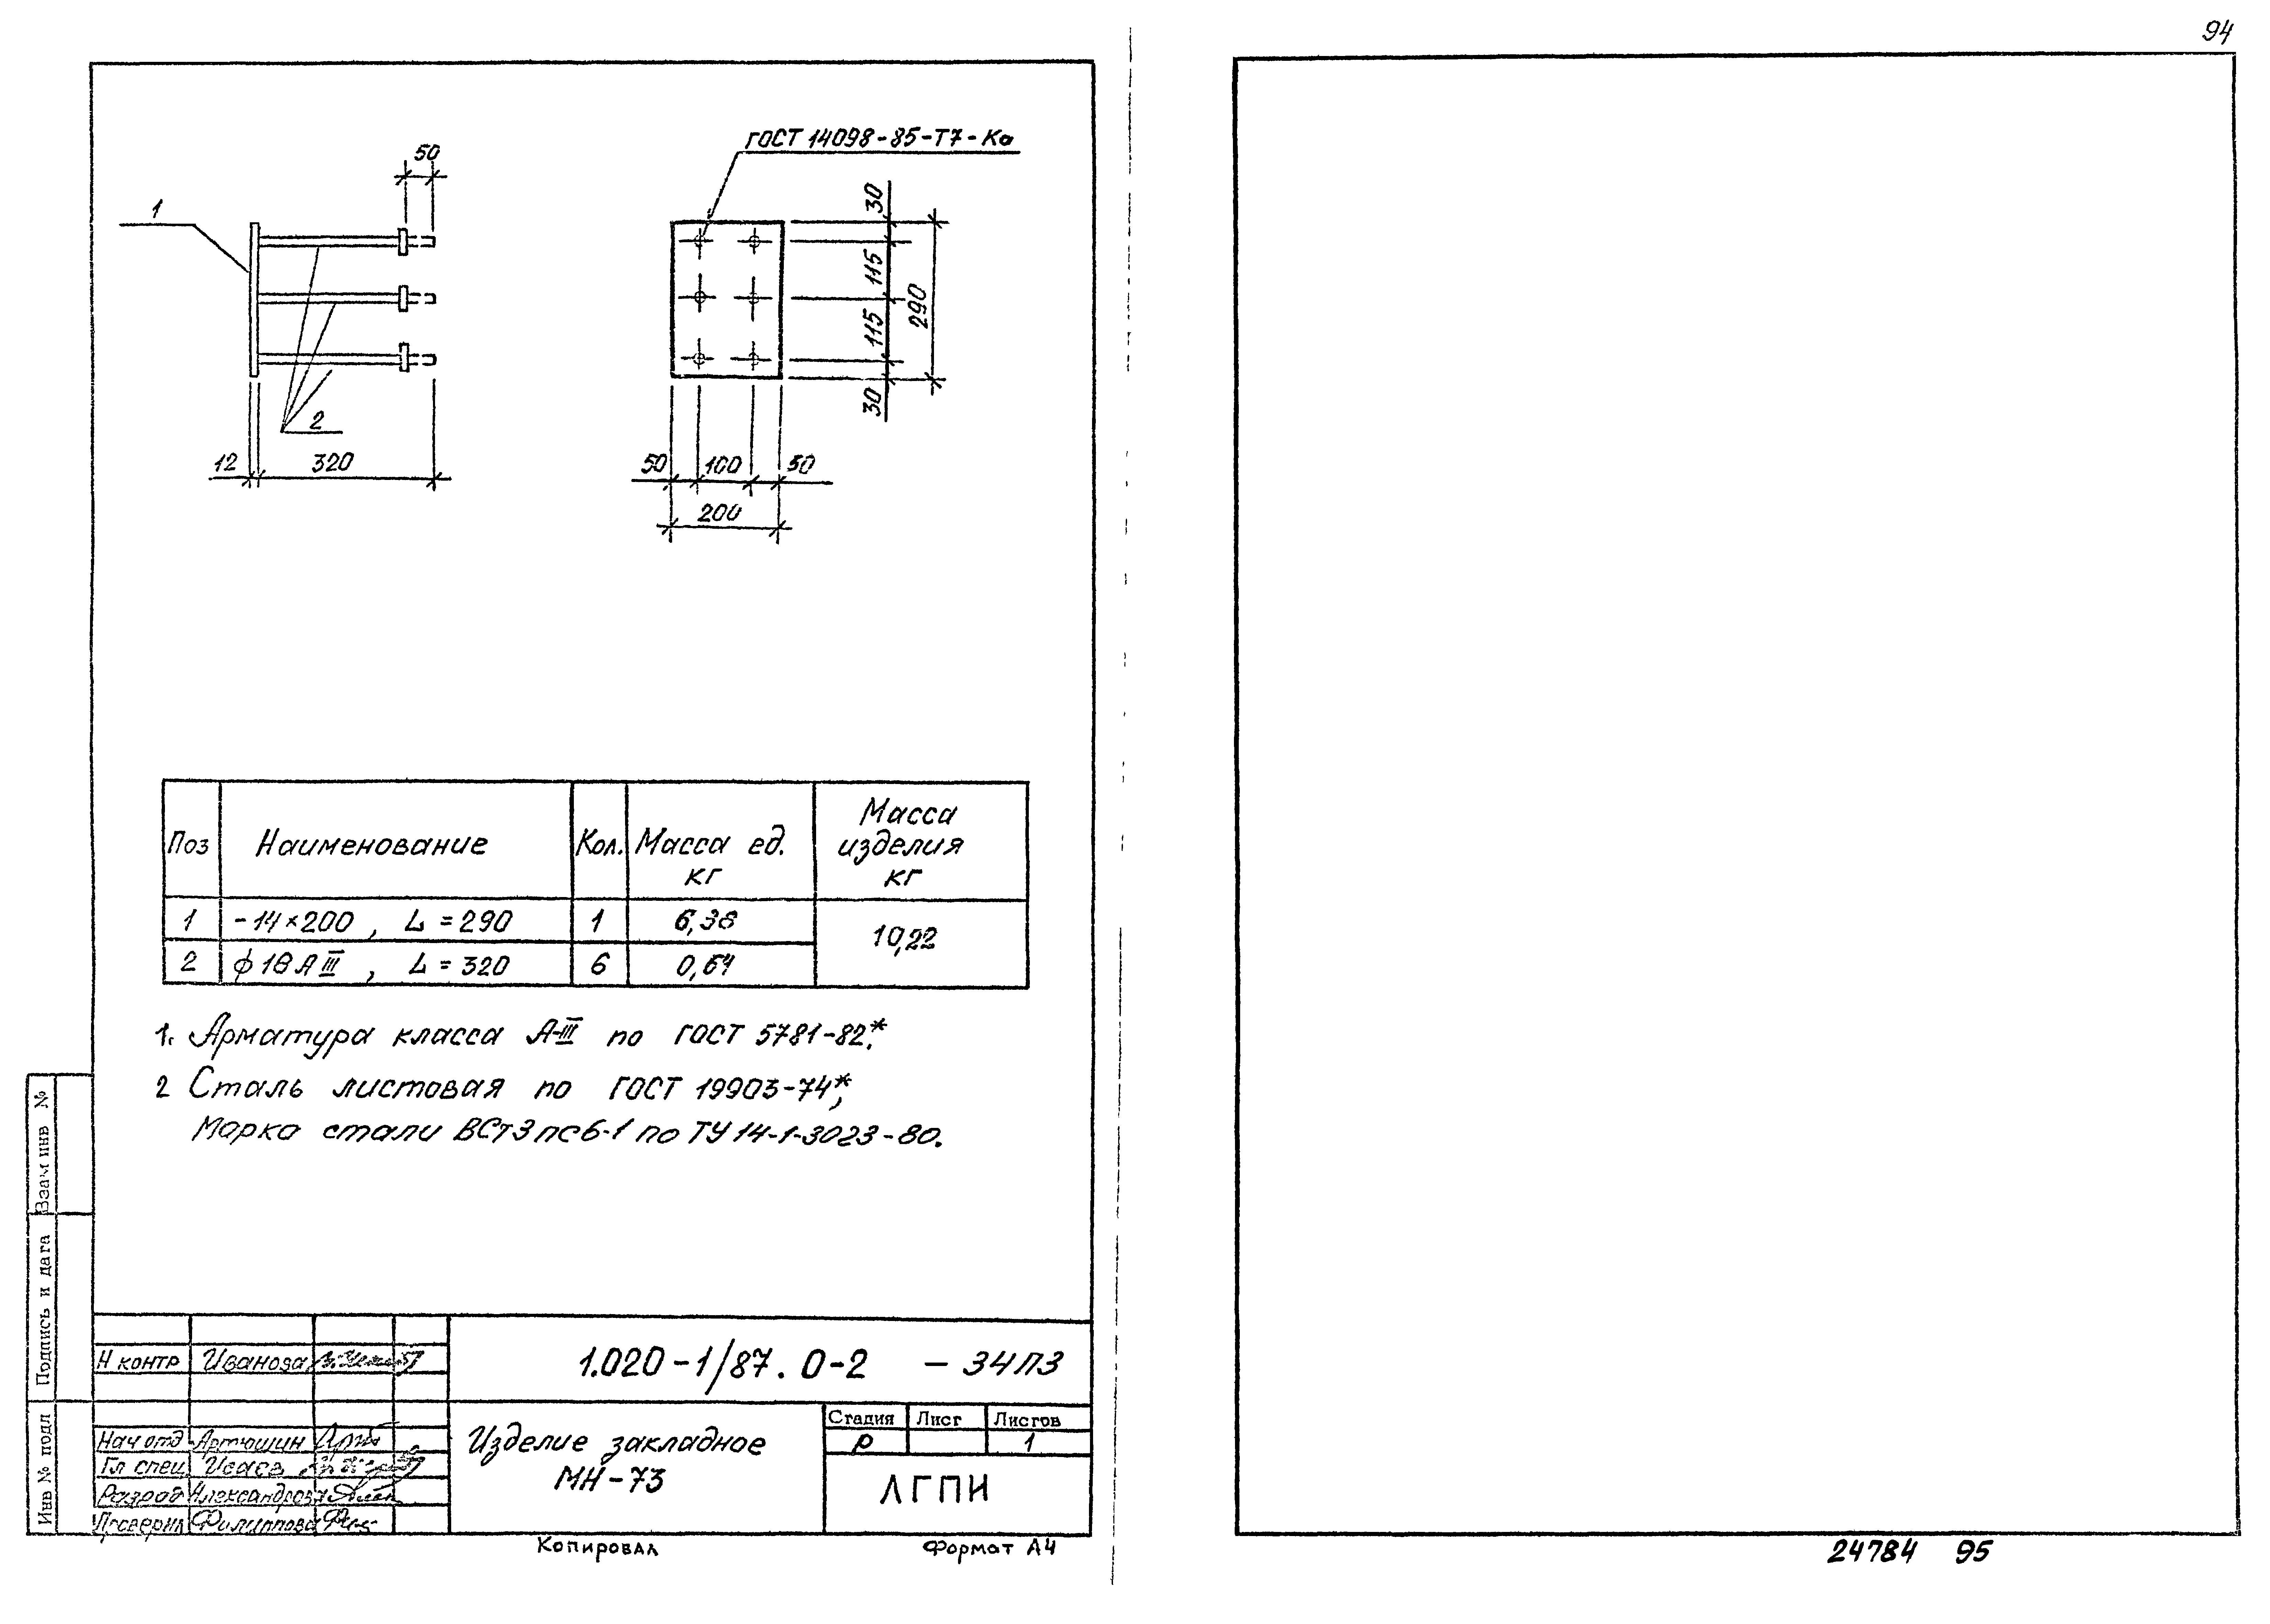 94
ГОСТ 14098-85-Т7-Кд
50
1
2
12 320
30
115
290
115
30
50 100 50
200
Поз Наименование Кол. Масса ед. кг Масса изделия кг
1 -14×200, L=290 1 6,38 10,22
2 ϕ16AIII, L=320 6 0,64
1. Арматура класса А-III по ГОСТ 5781-82.*
2 Сталь листовая по ГОСТ 19903-74*,
Марка стали ВСт3пс6-1 по ТУ 14-1-3023-80.
Взам инв №
Подпись и дата
Инв № подл
Н контр Иванова
1.020-1/87. 0-2 - 34ПЗ
Нач отд Артюшин
Гл спец Исаев
Разраб Александрова
Проверил Филиппова
Изделие закладное
МН-73
Стадия Лист Листов
Р 1
ЛГПИ
Копировал Формат А4
24784 95